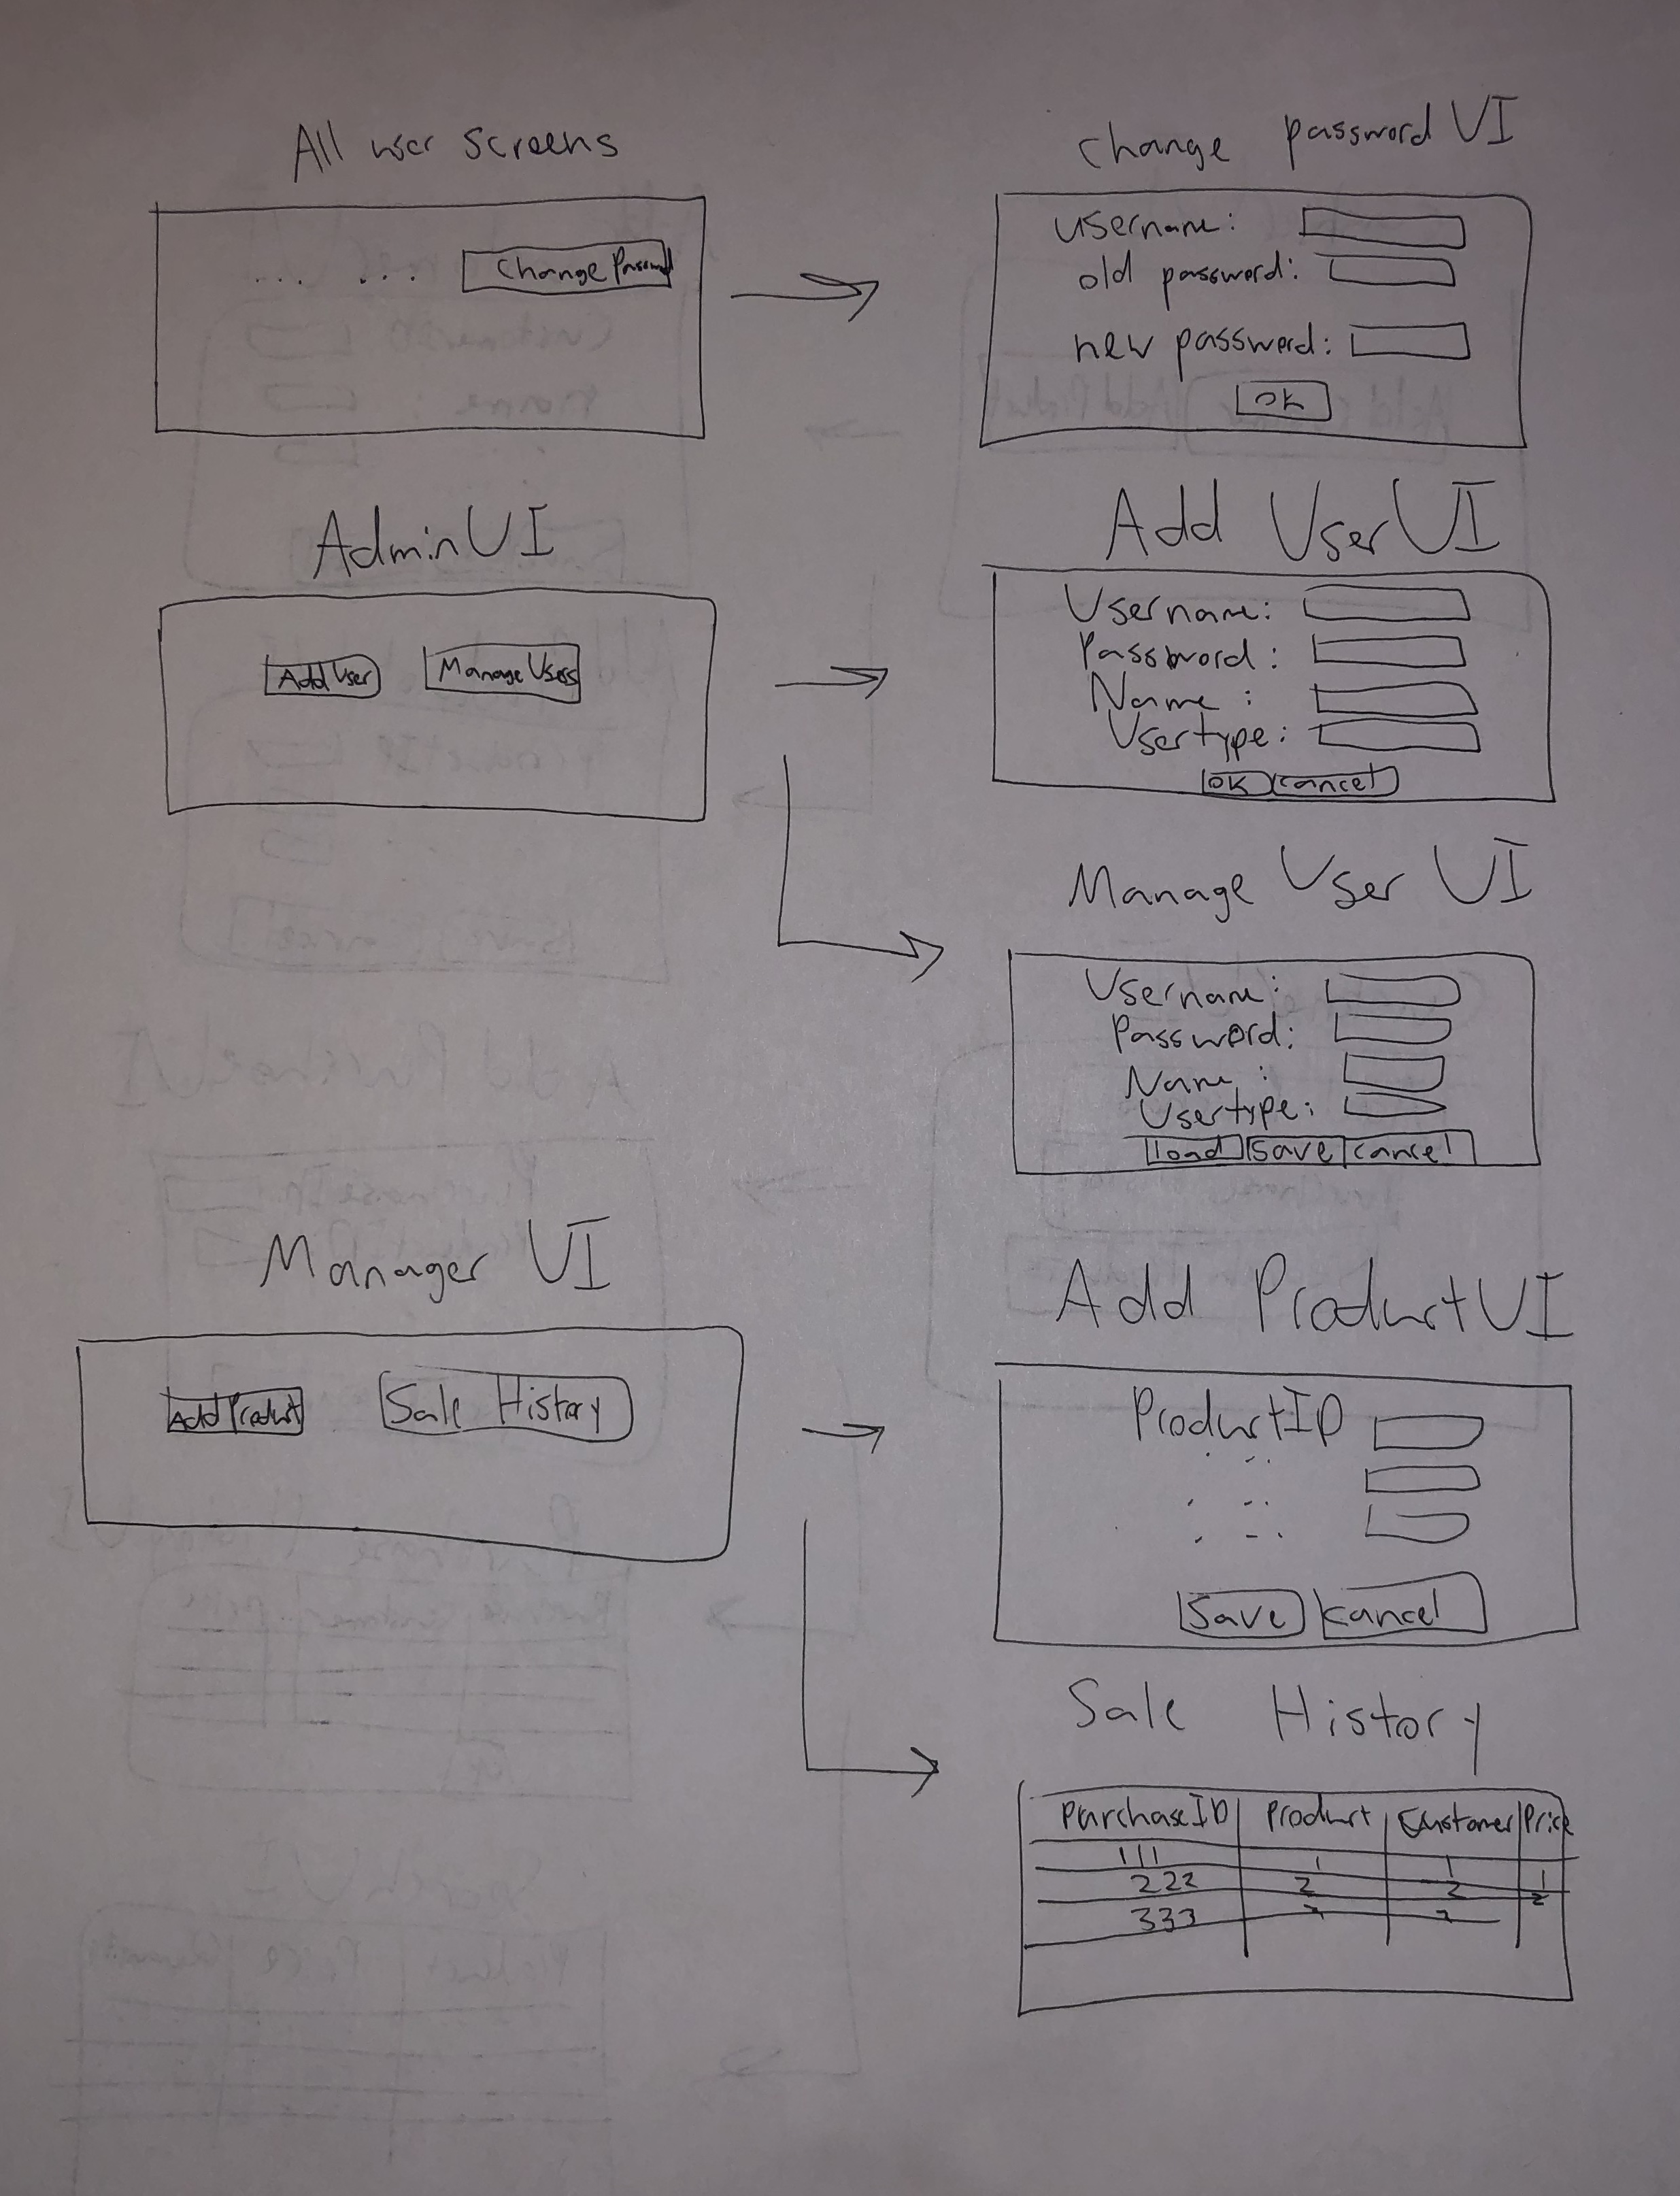 All user screens
... ... Change Password
change password UI
username:
old password:
new password:
OK
AdminUI
Add User Manage Users
Add User UI
Username:
Password:
Name :
Usertype:
OK cancel
Manage User UI
Username:
Password:
Name :
Usertype:
load save cancel
Manager UI
Add Product Sale History
Add Product UI
ProductID
Save cancel
Sale History
PurchaseID Product Customer Price
111 1 1 1
222 2 2 2
333